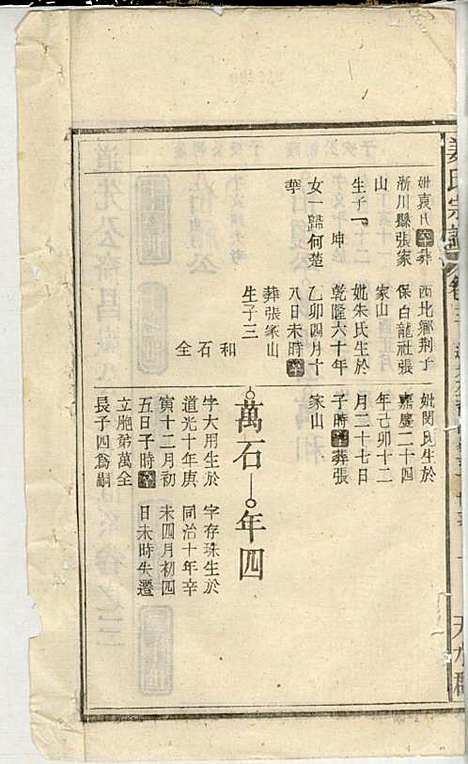 姜氏宗譜
卷三
天水郡
妣袁氏卒葬
淅川縣張家
山
生子一 坤
女一歸何楚
苹
西北鄉荆子
保白龍社張
家山
妣朱氏生於
乾隆六十年
乙卯四月十
八日未時卒
葬張家山
生子三
和 石 全
妣閔氏生於
嘉慶二十四
年己卯十二
月三十七日
子時卒葬張
家山
萬石
字大用生於
道光十年庚
寅十二月初
五日子時卒
立胞弟萬全
長子四爲嗣
年四
字存珠生於
同治十年辛
未四月初四
日未時失遷